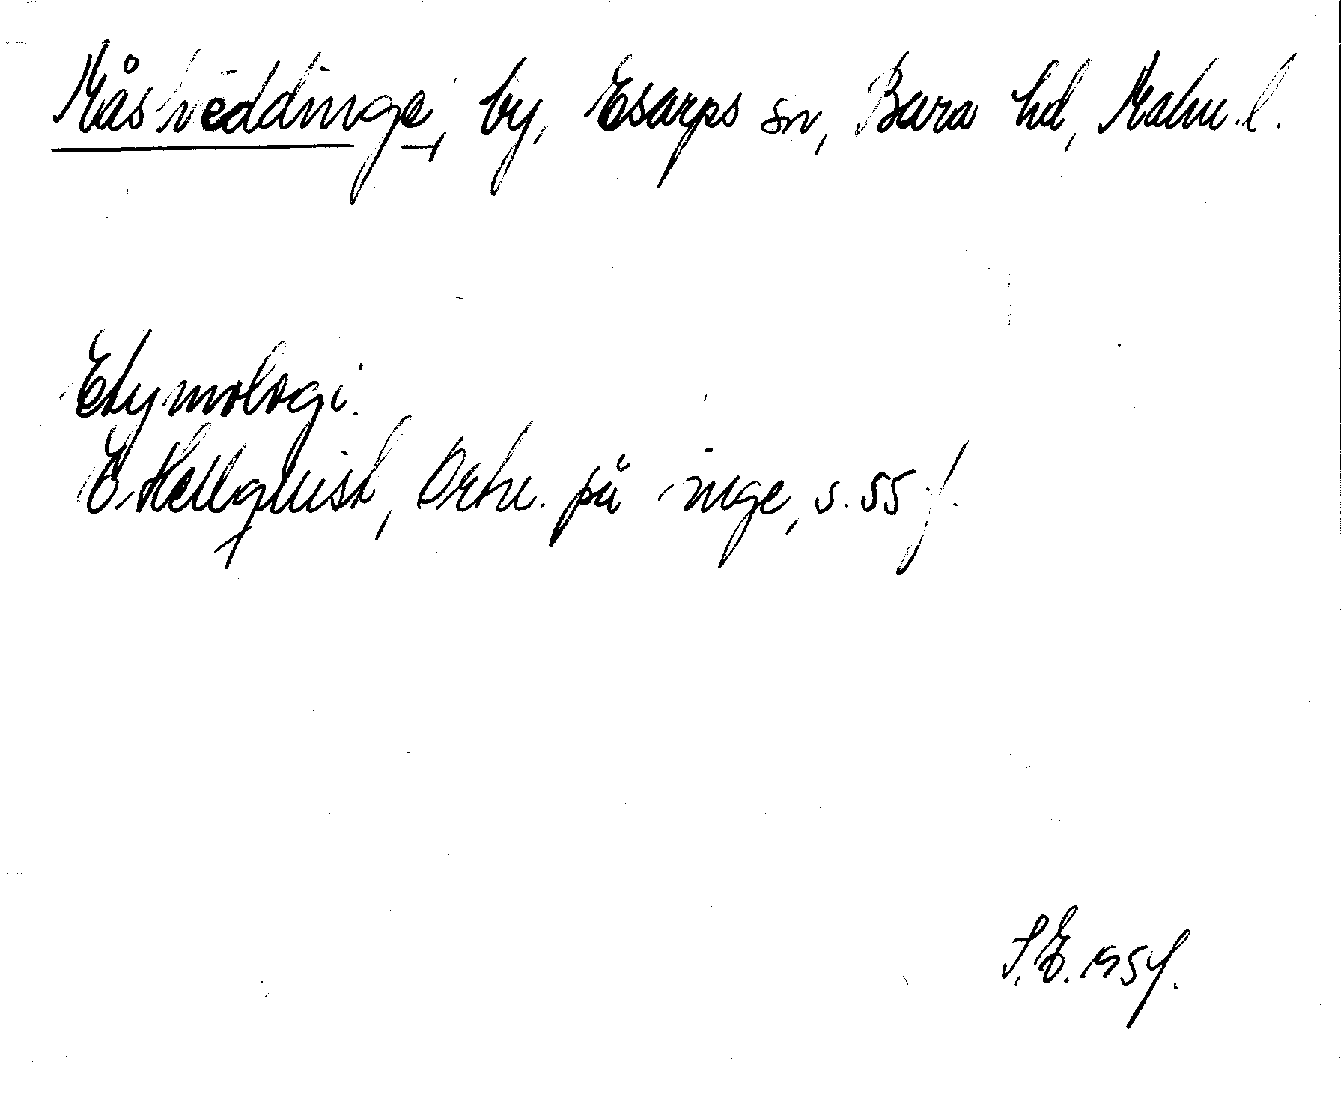 Måsveddinge, by, Esarps sn, Bara hd, Malm. l.
Etymologi.
E Hellquist, Ortn. på inge, s. 55 f.
S.E. 1954.